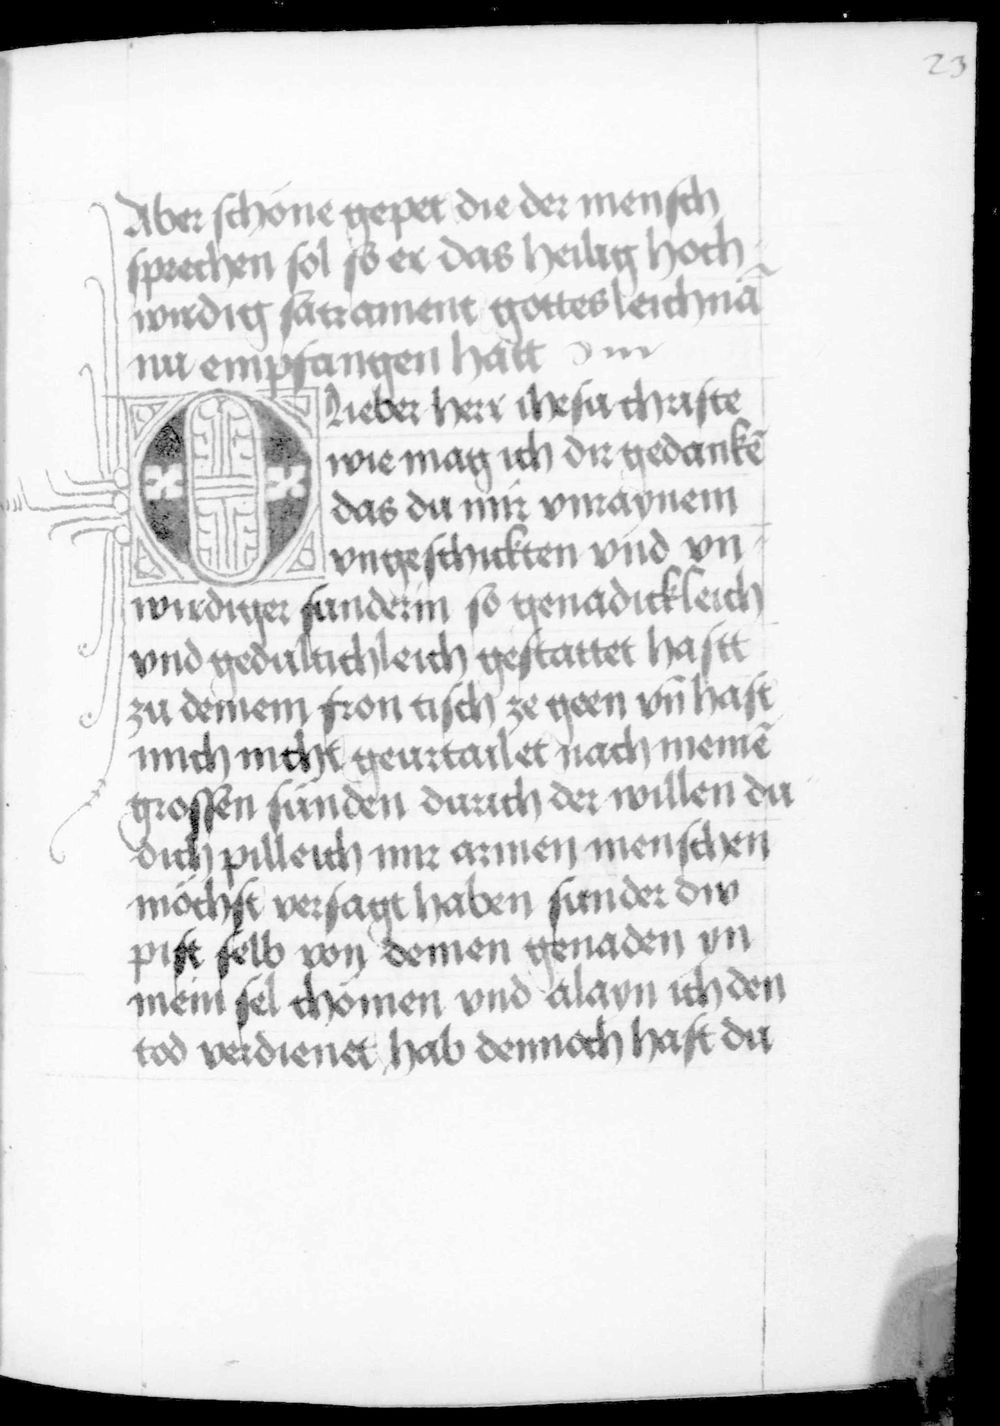 23
Aber schöne gepet die der mensch
sprechen sol so er das heilig hoch-
wirdig sacrament gottes leichnā
nu empfangen hatt
O lieber herr ihesu christe
wie mag ich dir gedankē
das du mir vnraynem
vngeschickten vnd vn-
wirdiger sunderin so genadickleich
vnd gedultichleich gestattet hastt
zu deinem fron tisch ze geen vn̄ hast
mich nicht geurtailet nach meinē
grossen sünden durich der willen du
dich pilleich mir armen menschen
möchst versagt haben sunder diw
pist selb von deinen genaden yn
mein sel chömen vnd alayn ich den
tod verdienet hab dennoch hast du